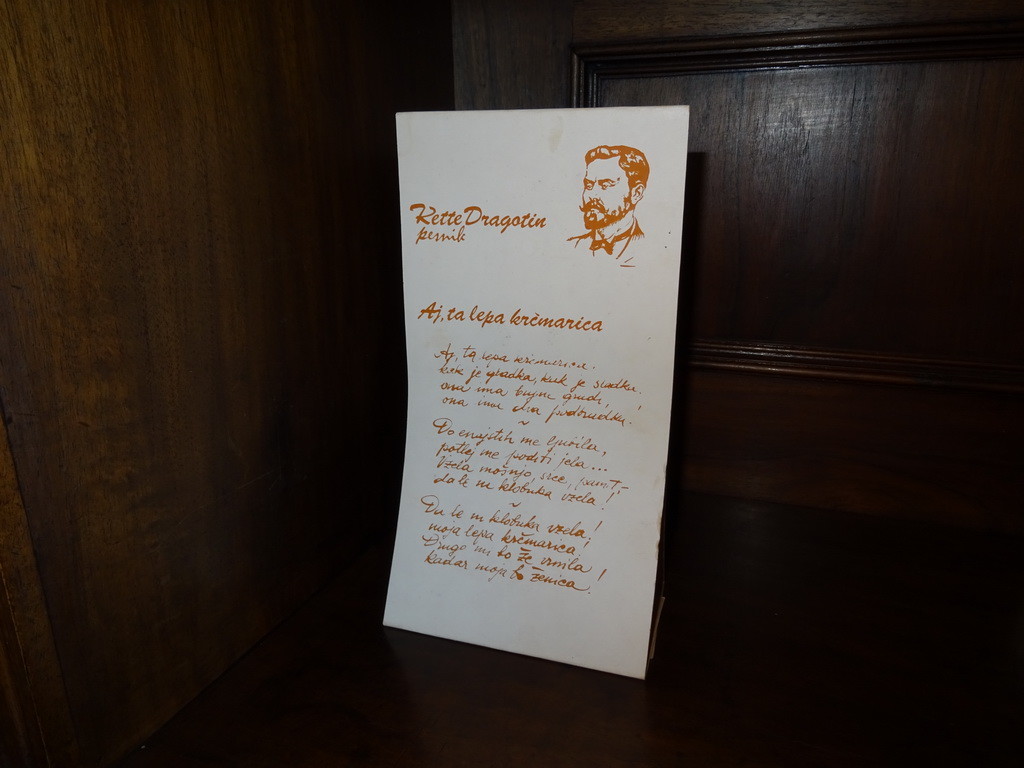 Kette Dragotin
pesnik
Aj, ta lepa krčmarica
Aj, ta lepa krčmarica,
kak je gladka, kak je sladka,
ona ima bujne grudi,
ona ima dva podbradka!
Do enajstih me ljubila,
potlej me poditi jela...
Vzela mošnjo, srce, pamet,
da le ni klobuka vzela!
Da le ni klobuka vzela,
moja lepa krčmarica!
Drugo mi bo že vrnila
kadar moja bo ženica!